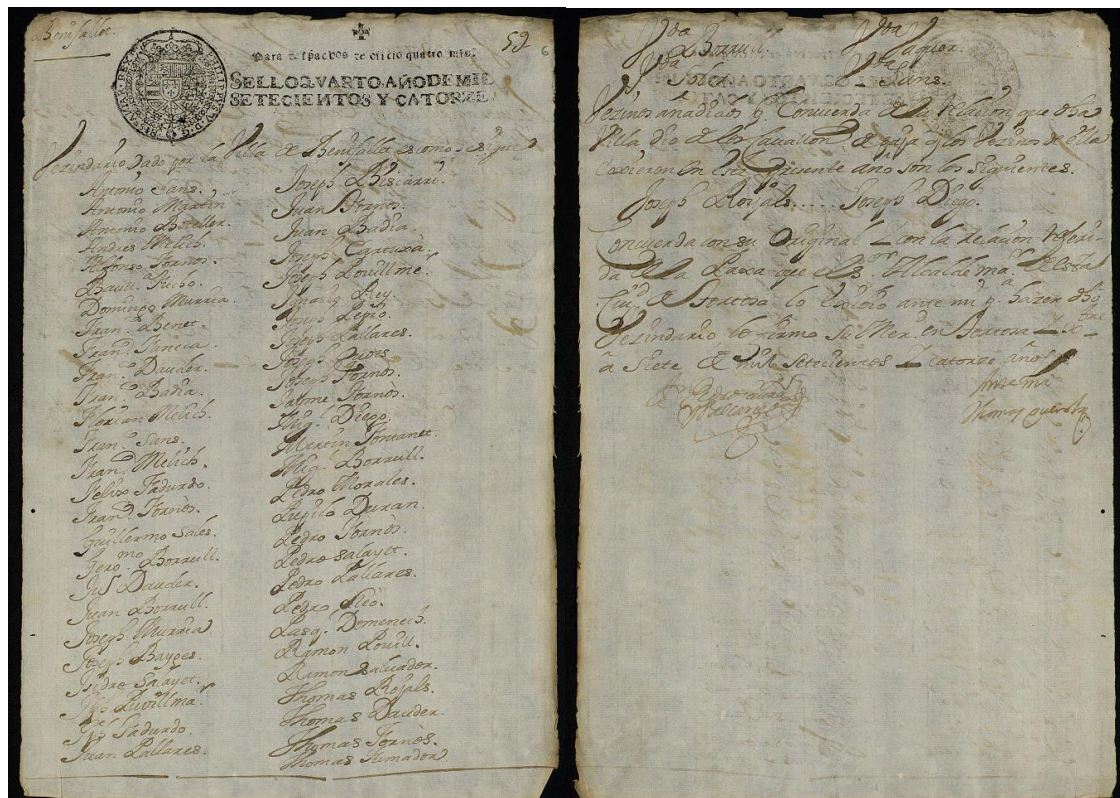 Benifallet.
59
6
Para despachos de oficio quatro mrs.
SELLO QVARTO AÑO DE MIL
SETECIENTOS Y CATORZE
Vezindario dado por la Villa de Benifallet es como se sigue
Antonio Sans.
Antonio Martin
Antonio Boteller.
Andres Melich.
Alfonso Fornos.
Baut.ª Piñho.
Domingo Murria.
Fran.co Benet.
Fran.co
Fran.co Dauder.
Fran.co Badia.
Florian Melich.
Fran.co Sans.
Fran.co Melich.
Felix Fadurdo.
Fran.co Fornòs.
Guillermo Sales.
Gero.mo Borrull.
Jus Dauder.
Juan Borrull.
Joseph Murria
Joseph Bayges.
Isidro Salayet.
Jph
Jph Fadurdo.
Juan Pallares.
Joseph Biscarri.
Juan Fornos.
Juan Badia.
Joseph Cartuxà.
Joseph
Ignasio Rey.
Joseph
Joseph Pallares.
Joseph
Joseph Fornos.
Jayme Fornòs.
Mig.l Diego.
Martin Fontanet.
Mig.l Borrull.
Pedro Morales.
Pupilo Duran.
Pedro Fornos.
Pedro Salayet.
Pedro Pallares.
Pedro
Pasq.l Domenech.
Ramon
Ramon Salvador.
Thomas Rojals.
Thomas Dauder.
Thomas Fornès.
Thomas
V.da Borrull.
V.da Jaquer.
V.da
V.da Sans.
Vezinos añadidos q. Concuerda de la relacion que dha
Villa dio de los Cavallon de paja q los Vezinos de ella
Cojieron en este presente año son los siguientes.
Joseph Rojals..... Joseph Diego.
Concuerda con su Original y con la relacion referi-
da de la Paxa que el S.or Alcalde ma.r de esta
Ciu.d de Tortosa lo exivio ante mi p.ª hazer dho
Vezindario lo firmo su Mer.d en Tortosa y
â siete de mil setecientos y catorze años
Ante mi
Thomas